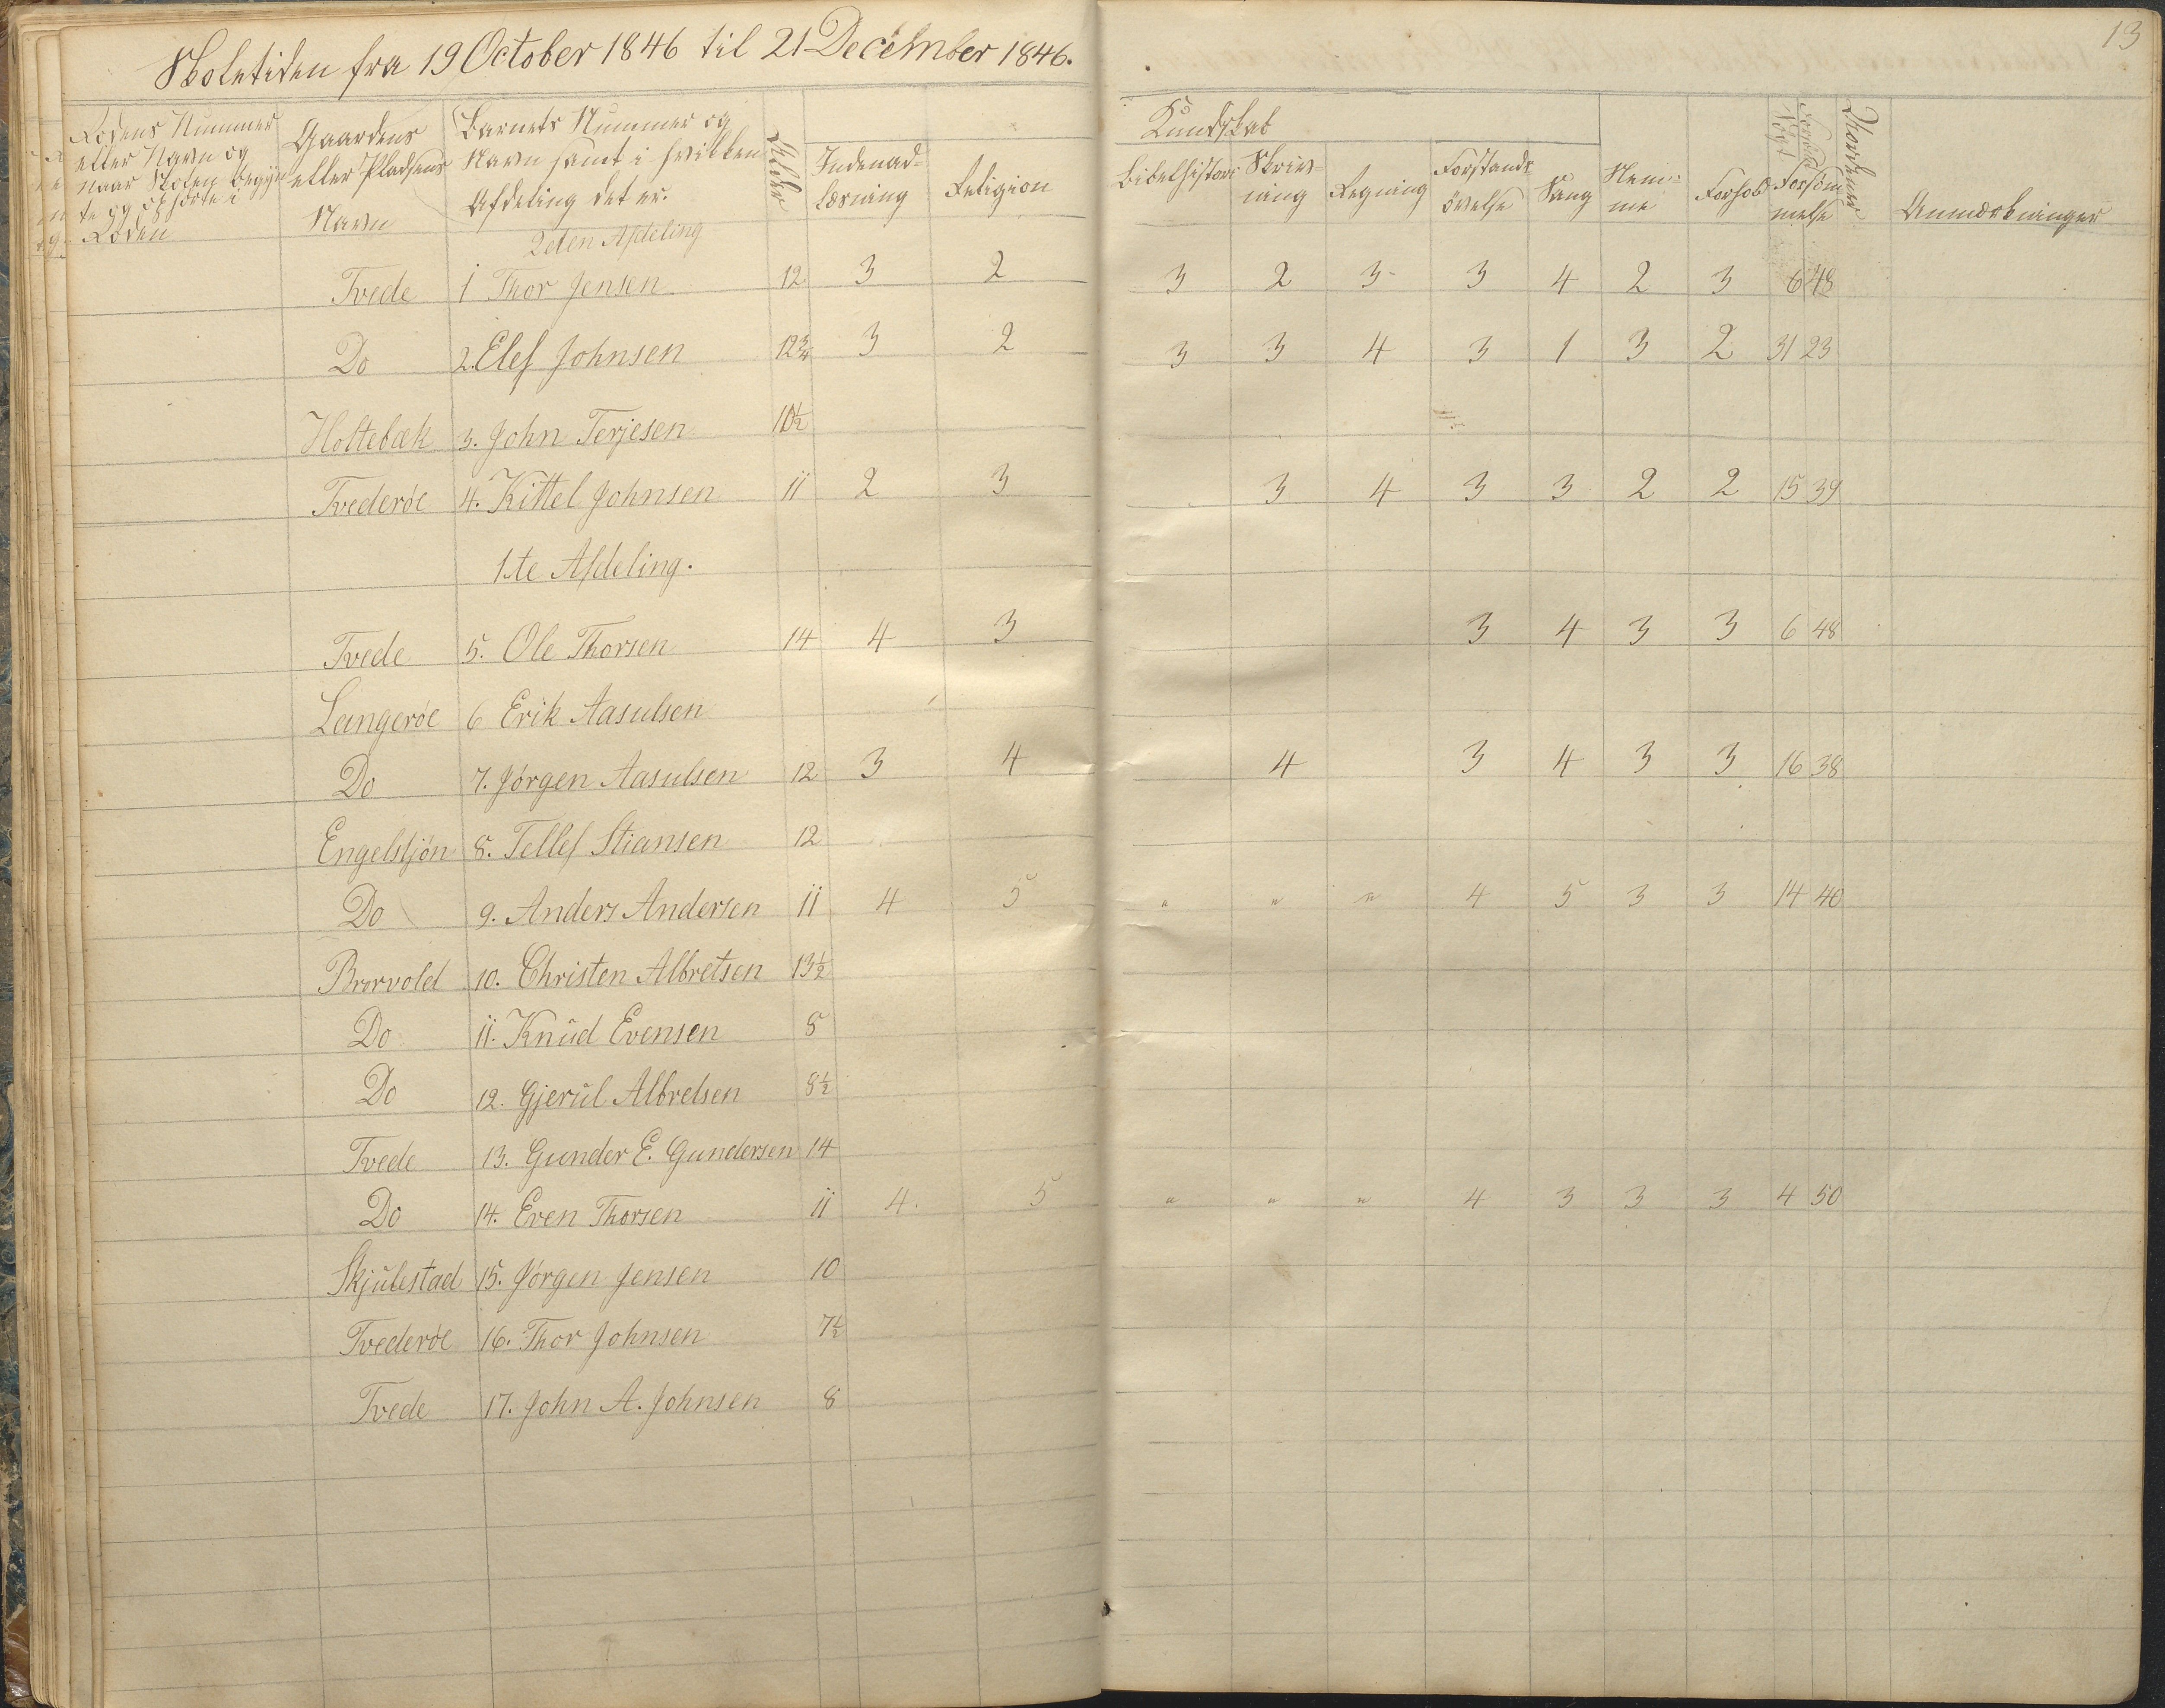 13
Skoletiden fra 19 October 1846 til 21 December 1846.
Rodens Nummer eller Navn og naar Skolen begyn te og ophörte i Roden
Gaardens eller Pladsens Navn
Barnets Nummer og Navn samt i hvilken Afdeling det er.
Alder
Indenad-læsning
Religion
Kundskab
Bibelhistorie
Skriv-ning
Regning
Forstands övelse
Sang
Nem-me
Forhold
Forsöm melse
Anmærkninger
2den Afdeling
Tvede 1 Thor Jensen 12 3 2 3 2 3 3 4 2 3 6 48
Do 2. Elef Johnsen 12 3/4 3 2 3 3 4 3 1 3 2 31 23
Holtebæk 3. John Terjesen 10½
Tvederöe 4. Kittel Johnsen 11 2 3 3 4 3 3 2 2 15 39
1te Afdeling.
Tvede 5. Ole Thorsen 14 4 3 3 4 3 3 6 48
Langeröe 6 Erik Aasulsen
Do 7. Jörgen Aasulsen 12 3 4 4 3 4 3 3 16 38
Engelstjön 8. Tellef Stiansen 12
Do 9. Anders Andersen 11 4 5 " " " 4 5 3 3 14 40
Brorvold 10. Christen Albretsen 13½
Do 11. Knud Evensen 8
Do 12. Gjerul Albretsen 8½
Tvede 13. Gunder E. Gundersen 14
Do 14. Even Thorsen 11 4. 5 " " " 4 3 3 3 4 50
Skjulestad 15. Jörgen Jensen 10
Tvederöe 16. Thor Johnsen 7½
Tvede 17. John A. Johnsen 8